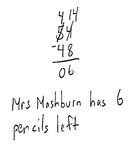 4 14
54
-48
06
Mrs. Mashburn has 6
pencils left